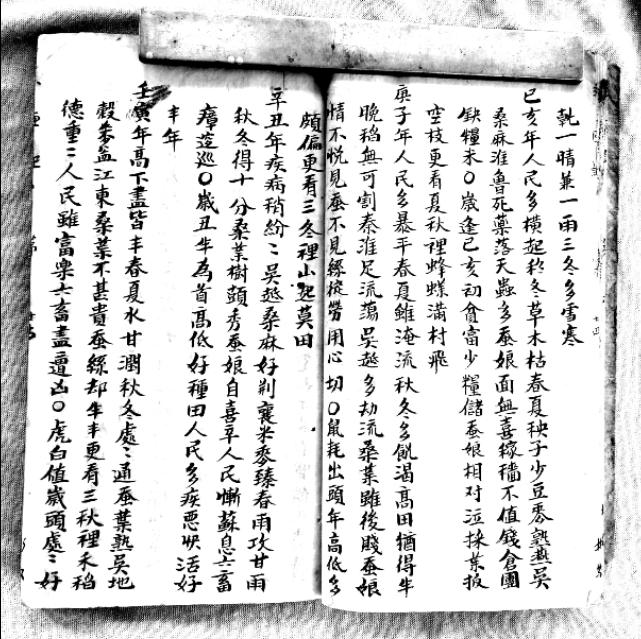 執一晴兼一雨三冬多雪寒
己亥年人民多橫起秋冬草木枯春夏秧子少豆麥熟燕吳
桑麻淮魯死葉落天蟲多蚕娘面無喜稼穡不值錢倉團
缺糧米〇歲逢己亥初貧富少糧儲蚕娘相对泣採葉扳
空枝更看夏秋裡蜂蝶滿村飛
庚子年人民多暴卒春夏雖淹流秋冬多飢渴高田猶得半
晚稻無可割秦淮足流蕩吳越多劫流桑葉雖後賤蚕娘
情不悅見蚕不見絲徒勞用心切〇鼠耗出頭年高低多
頗偏更看三冬裡山起莫田
辛丑年疾病稍紛〻吳越桑麻好荆襄米麥臻春雨攻甘雨
秋冬得十分桑葉樹頭秀蚕娘自喜辛人民慚蘇息六畜
瘴逡巡〇歲丑牛為首高低好種田人民多疾惡快活好
丰年
壬寅年高下盡皆丰春夏水甘潤秋冬處〻通蚕葉熟吳地
穀麥益江東桑葉不甚貴蚕絲却半丰更看三秋裡禾稻
德重〻人民雖富樂六畜盡遭凶〇虎白值歲頭處〻好